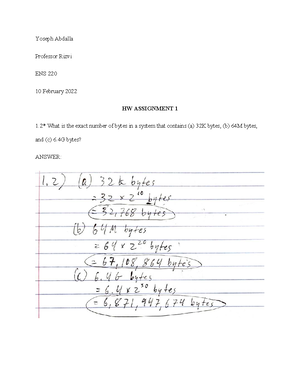 Yoseph Abdalla
Professor Rizvi
ENS 220
10 February 2022
HW ASSIGNMENT 1
1.2* What is the exact number of bytes in a system that contains (a) 32K bytes, (b) 64M bytes,
and (c) 6.4G bytes?
ANSWER:
1.2) (a) 32 k bytes
= 32 × 2^10 bytes
= 32,768 bytes
(b) 64 M bytes
= 64 × 2^20 bytes
= 67,108,864 bytes
(c) 6.4 G bytes
= 6.4 × 2^30 bytes
= 6,871,947,674 bytes